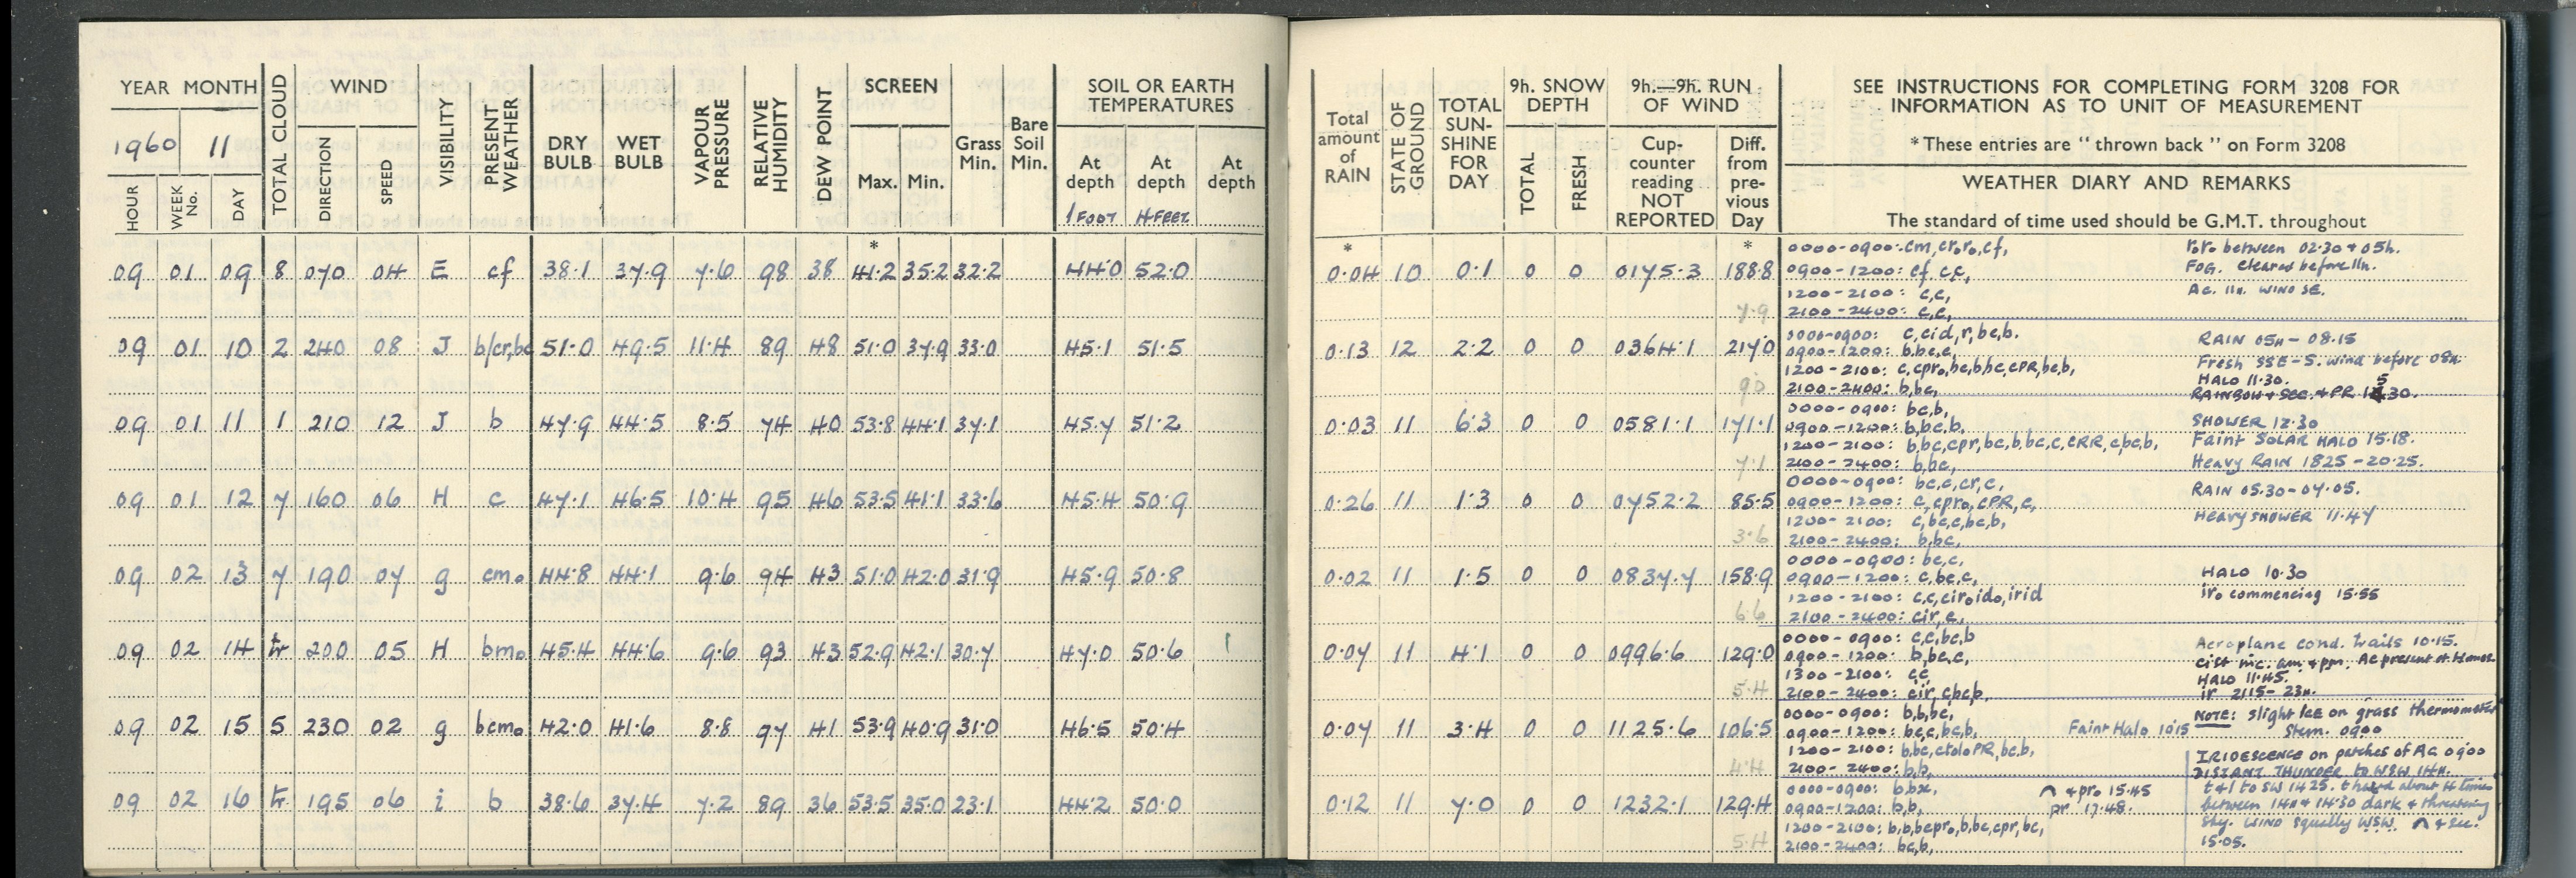 YEAR MONTH
1960 11
HOUR WEEK No. DAY TOTAL CLOUD WIND DIRECTION SPEED VISIBILITY PRESENT WEATHER DRY BULB WET BULB VAPOUR PRESSURE RELATIVE HUMIDITY DEW POINT SCREEN Max. Min. Grass Min. Bare Soil Min.
SOIL OR EARTH TEMPERATURES
At depth 1 FOOT At depth 4 FEET At depth
*
09 01 09 8 070 04 E cf 38.1 37.9 7.6 98 38 41.2 35.2 32.2 44.0 52.0
09 01 10 2 240 08 J b/cr,bc 51.0 49.5 11.4 89 48 51.0 37.9 33.0 45.1 51.5
09 01 11 1 210 12 J b 47.9 44.5 8.5 74 40 53.8 44.1 37.1 45.7 51.2
09 01 12 7 160 06 H c 47.1 46.5 10.4 95 46 53.5 41.1 33.6 45.4 50.9
09 02 13 7 190 07 g cmo 44.8 44.1 9.6 94 43 51.0 42.0 31.9 45.9 50.8
09 02 14 tr 200 05 H bmo 45.4 44.6 9.6 93 43 52.9 42.1 30.7 47.0 50.6
09 02 15 5 230 02 g bcmo 42.0 41.6 8.8 97 41 53.9 40.9 31.0 46.5 50.4
09 02 16 tr 195 06 i b 38.6 37.4 7.2 89 36 53.5 35.0 23.1 44.2 50.0
Total amount of RAIN STATE OF GROUND TOTAL SUN-SHINE FOR DAY
9h. SNOW DEPTH TOTAL FRESH
9h.—9h. RUN OF WIND
Cup-counter reading NOT REPORTED Diff. from pre-vious Day
SEE INSTRUCTIONS FOR COMPLETING FORM 3208 FOR
INFORMATION AS TO UNIT OF MEASUREMENT
* These entries are "thrown back" on Form 3208
WEATHER DIARY AND REMARKS
The standard of time used should be G.M.T. throughout
* *
0.04 10 0.1 0 0 0175.3 188.8
7.9
0000-0900: cm, cr,ro, cf, r,ro between 02.30 & 05h.
0900-1200: cf, c,c, FOG. Cleared before 11h.
1200-2100: c,c, Ac. 11h. WIND SE.
2100-2400: c,c,
0.13 12 2.2 0 0 0364.1 217.0
9.0
0000-0900: c,cid,r,bc,b. RAIN 05h - 08.15
0900-1200: b,bc,c, Fresh SSE-S. wind before 08h.
1200-2100: c,cpro,bc,b,bc,cPR,bc,b, HALO 11.30.
2100-2400: b,bc, RAINBOW & SEC. & PR 1530.
0.03 11 6.3 0 0 0581.1 171.1
7.1
0000-0900: bc,b,
0900-1200: b,bc,b, SHOWER 12.30
1200-2100: b,bc,cpr,bc,b,bc,c,cRR,c,bc,b, Faint SOLAR HALO 15.18.
2100-2400: b,bc, Heavy RAIN 1825 - 20.25.
0.26 11 1.3 0 0 0752.2 85.5
3.6
0000-0900: bc,c,cr,c, RAIN 05.30-07.05.
0900-1200: c,cpro,cPR,c,
1200-2100: c,bc,c,bc,b, Heavy SHOWER 11.47
2100-2400: b,bc,
0.02 11 1.5 0 0 0837.7 158.9
6.6
0000-0900: bc,c,
0900-1200: c,bc,c, HALO 10.30
1200-2100: c,c,ciro,ido,irid iro commencing 15.55
2100-2400: cir,c,
0.07 11 4.1 0 0 0996.6 129.0
5.4
0000-0900: c,c,bc,b Aeroplane cond. trails 10.15.
0900-1200: b,bc,c, cist inc. am & pm. Ac present at times
1300-2100: c,c HALO 11.45.
2100-2400: cir,c,bc,b, ir 2115-23h.
0.07 11 3.4 0 0 1125.6 106.5
4.4
0000-0900: b,b,bc, NOTE: Slight ICE on grass thermometer
0900-1200: bc,c,bc,b, Faint Halo 1015 stem. 0900
1200-2100: b,bc,ctoloPR,bc,b, IRIDESCENCE on patches of Ac 0900
2100-2400: b,b, DISTANT THUNDER to WSW 14h.
0.12 11 7.0 0 0 1232.1 129.4
5.4
0000-0900: b,bx, ⌒ & pro 15.45 t & l to SW 1425. about 4 times
0900-1200: b,b, pr 17.48. between 14h & 14.30 dark & threatening
1200-2100: b,b,bcpro,b,bc,cpr,bc, sky. WIND squally WSW. ⌒ & sec.
2100-2400: bc,b, 15.05.